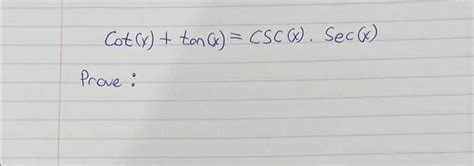 Cot(x) + tan(x) = CSC(x) . Sec(x)
Prove :